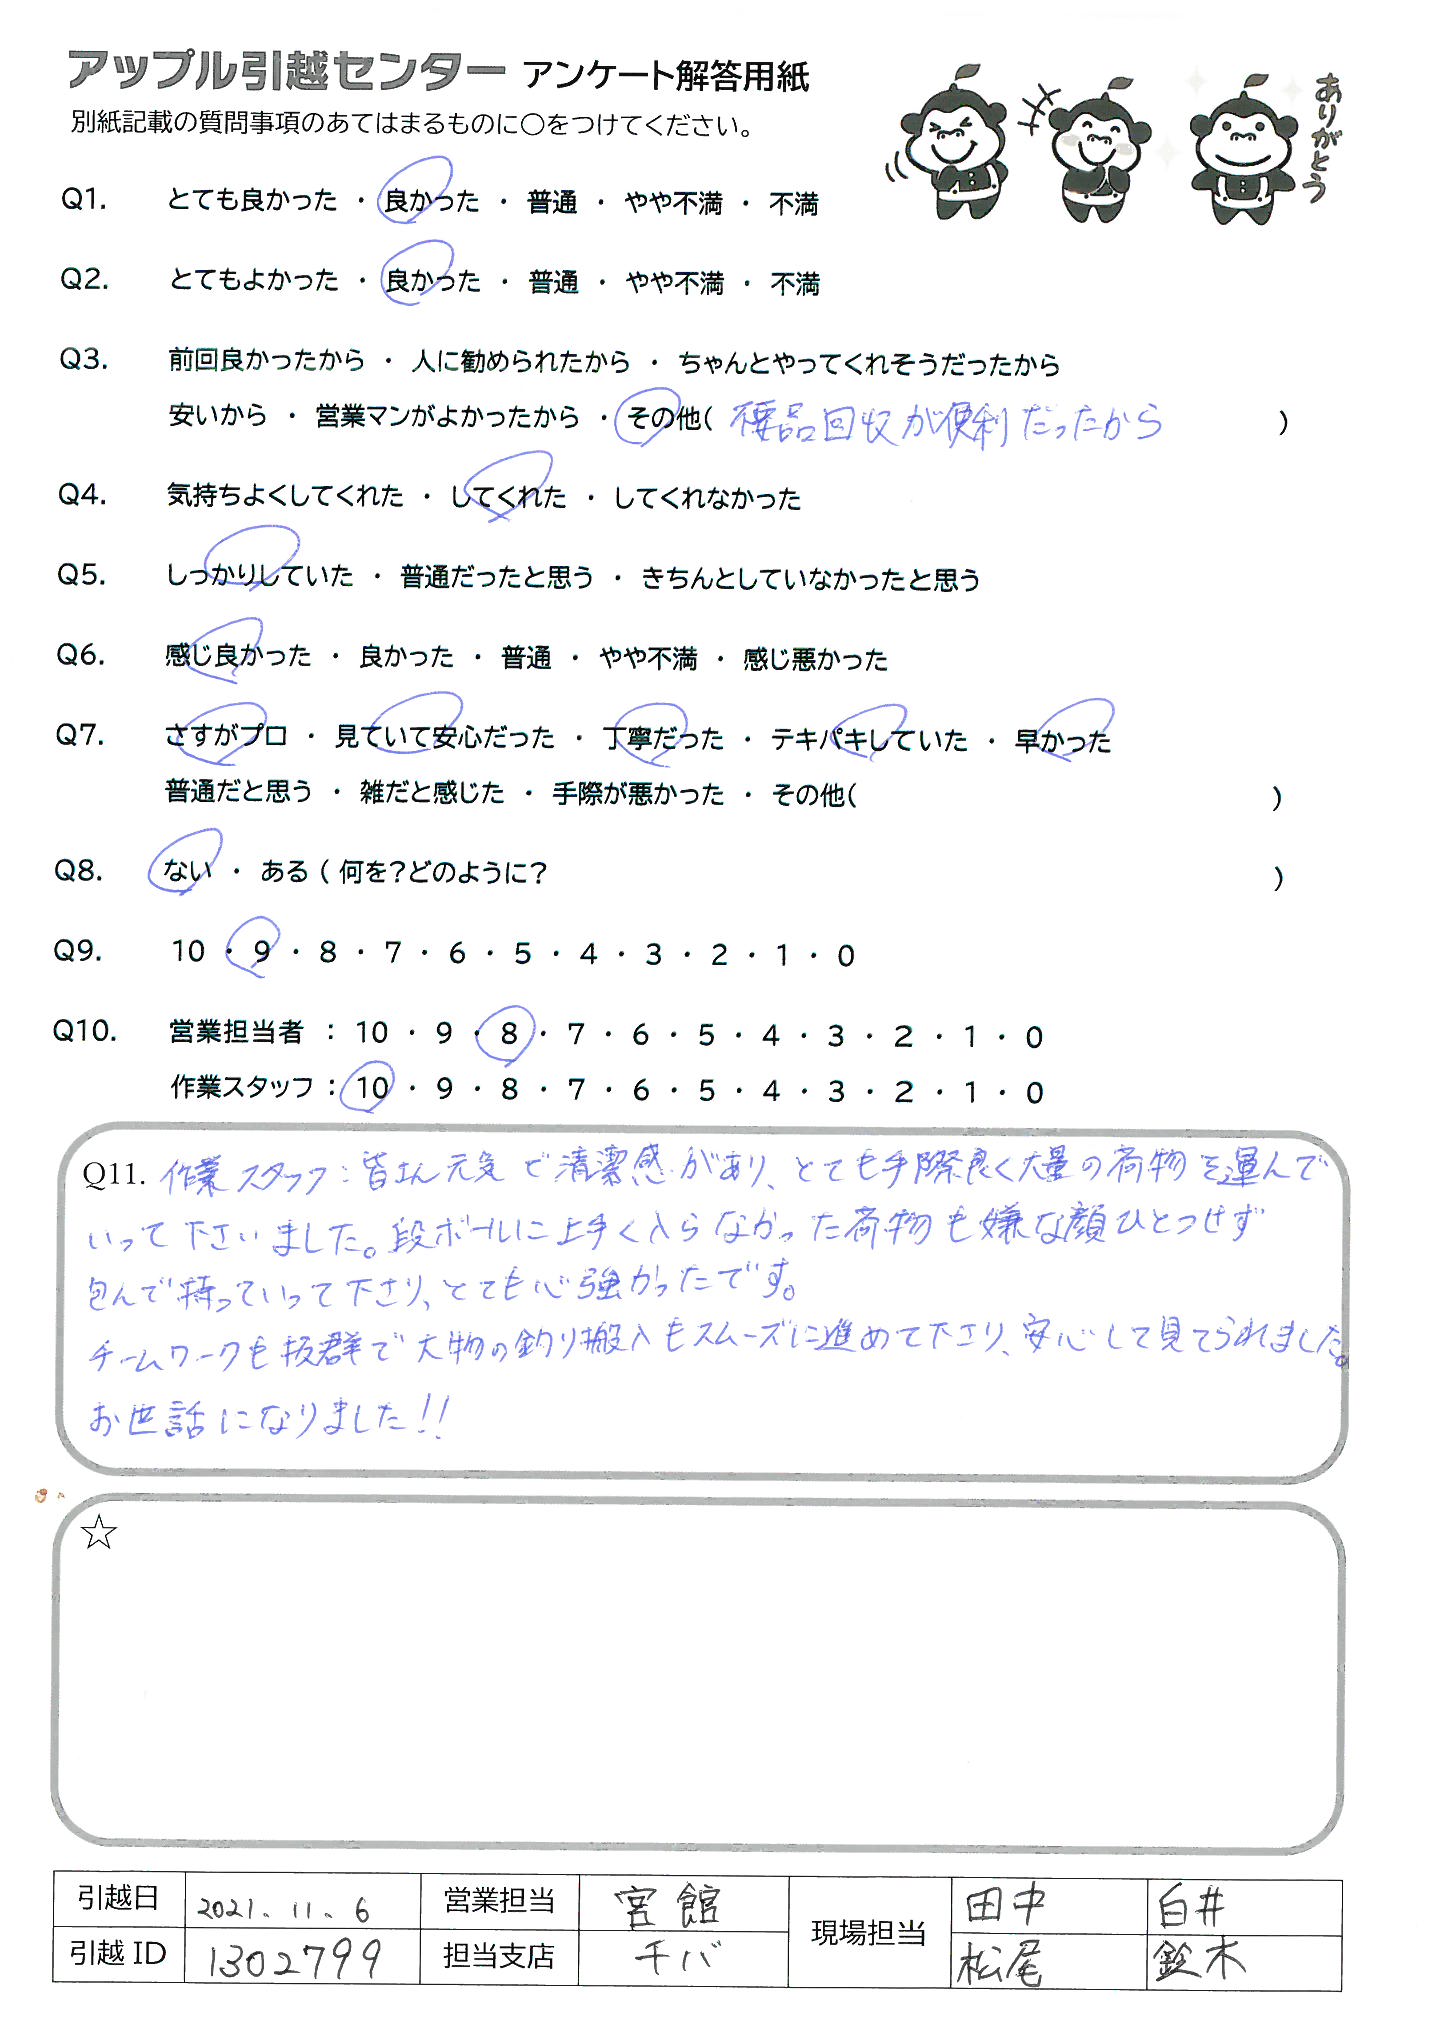 アップル引越センター アンケート解答用紙
別紙記載の質問事項のあてはまるものに○をつけてください。
ありがとう
Q1. とても良かった ・ 良かった ・ 普通 ・ やや不満 ・ 不満
Q2. とてもよかった ・ 良かった ・ 普通 ・ やや不満 ・ 不満
Q3. 前回良かったから ・ 人に勧められたから ・ ちゃんとやってくれそうだったから
安いから ・ 営業マンがよかったから ・ その他( 不要品回収が便利だったから )
Q4. 気持ちよくしてくれた ・ してくれた ・ してくれなかった
Q5. しっかりしていた ・ 普通だったと思う ・ きちんとしていなかったと思う
Q6. 感じ良かった ・ 良かった ・ 普通 ・ やや不満 ・ 感じ悪かった
Q7. さすがプロ ・ 見ていて安心だった ・ 丁寧だった ・ テキパキしていた ・ 早かった
普通だと思う ・ 雑だと感じた ・ 手際が悪かった ・ その他( )
Q8. ない ・ ある ( 何を?どのように? )
Q9. 10 ・ 9 ・ 8 ・ 7 ・ 6 ・ 5 ・ 4 ・ 3 ・ 2 ・ 1 ・ 0
Q10. 営業担当者 : 10 ・ 9 ・ 8 ・ 7 ・ 6 ・ 5 ・ 4 ・ 3 ・ 2 ・ 1 ・ 0
作業スタッフ : 10 ・ 9 ・ 8 ・ 7 ・ 6 ・ 5 ・ 4 ・ 3 ・ 2 ・ 1 ・ 0
Q11. 作業スタッフ:皆さん元気で清潔感があり、とても手際良く大量の荷物を運んで
いって下さいました。段ボールに上手く入らなかった荷物も嫌な顔ひとつせず
包んで持っていって下さり、とても心強かったです。
チームワークも抜群で大物の釣り搬入もスムーズに進めて下さり、安心して見てられました。
お世話になりました!!
☆
引越日 2021.11.6 営業担当 宮館 現場担当 田中 白井
引越ID 1302799 担当支店 千バ 松尾 鈴木